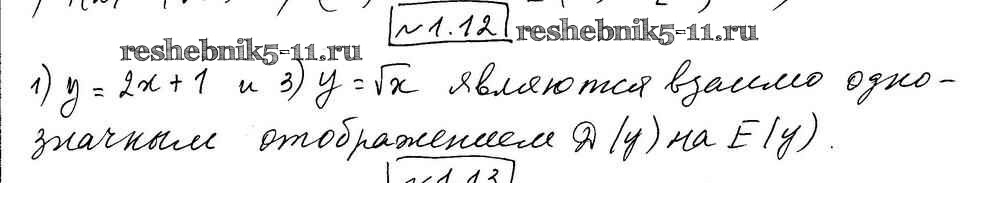 №1.12
reshebnik5-11.ru reshebnik5-11.ru
1) y = 2x + 1 и 3) y = √x являются взаимо одно-
значным отображением D(y) на E(y).
№1.13